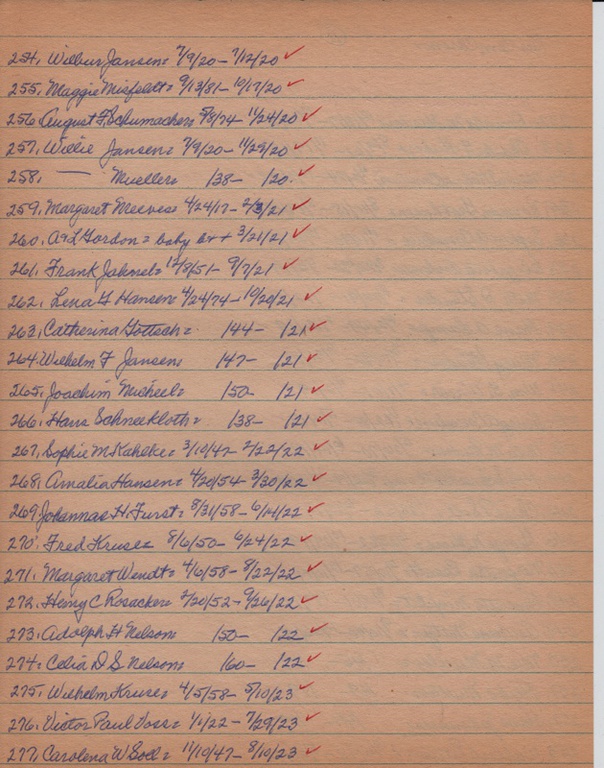 254. Wilbur Jansen = 7/9/20 - 7/12/20 ✓
255. Maggie Misfeldt = 9/13/81 - 10/17/20 ✓
256. August F. Schumacher = 5/8/74 - 11/24/20 ✓
257. Willie Jansen = 7/9/20 - 11/29/20 ✓
258. — Mueller = /38 - /20. ✓
259. Margaret Meeves = 4/24/17 - 2/3/21 ✓
260. A & L Gordon = baby b + + 3/21/21 ✓
261. Frank Jahnel = 12/8/51 - 9/7/21 ✓
262. Lena G Hansen = 4/24/74 - 10/20/21 ✓
263. Catherina Göttsch = /44 - /21 ✓
264. Wilhelm F Jansen = /47 - /21 ✓
265. Joachim Micheel = /50 - /21 ✓
266. Hans Schneekloth = /38 - /21 ✓
267. Sophie M. Kahlke = 3/10/47 - 2/22/22 ✓
268. Amalia Hansen = 4/20/54 - 3/30/22 ✓
269. Johannas H. Furst = 8/31/58 - 6/14/22 ✓
270. Fred Kruse = 8/6/50 - 6/24/22 ✓
271. Margaret Wendt = 4/6/58 - 8/22/22 ✓
272. Henry C Rosacker = 2/20/52 - 9/26/22 ✓
273. Adolph H Nelson = /50 - /22 ✓
274. Celia D S Nelson = /60 - /22 ✓
275. Wilhelm Kruse = 4/5/58 - 5/10/23 ✓
276. Victor Paul Voss = 1/1/22 - 7/29/23 ✓
277. Carolena W Soll = 11/10/47 - 8/10/23 ✓